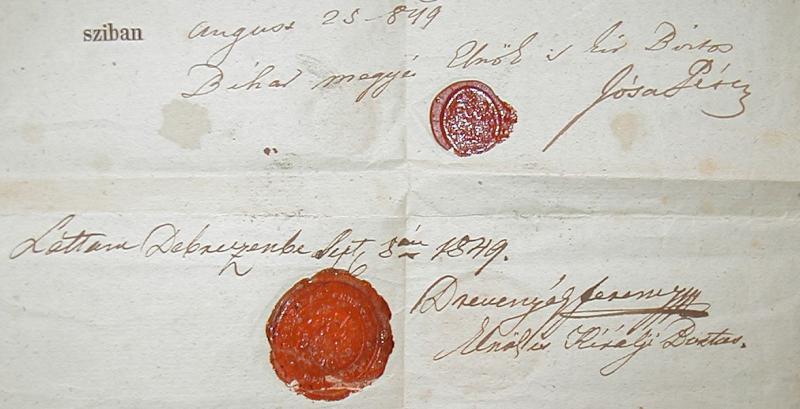 sziban august 25-849
Bihar megyei Elnök is kir Biztos
Jósa Péter
Láttam Debreczenbe Sept 3án 1849.
Drevenyák Ferencz
Elnök is Királyi Biztos.